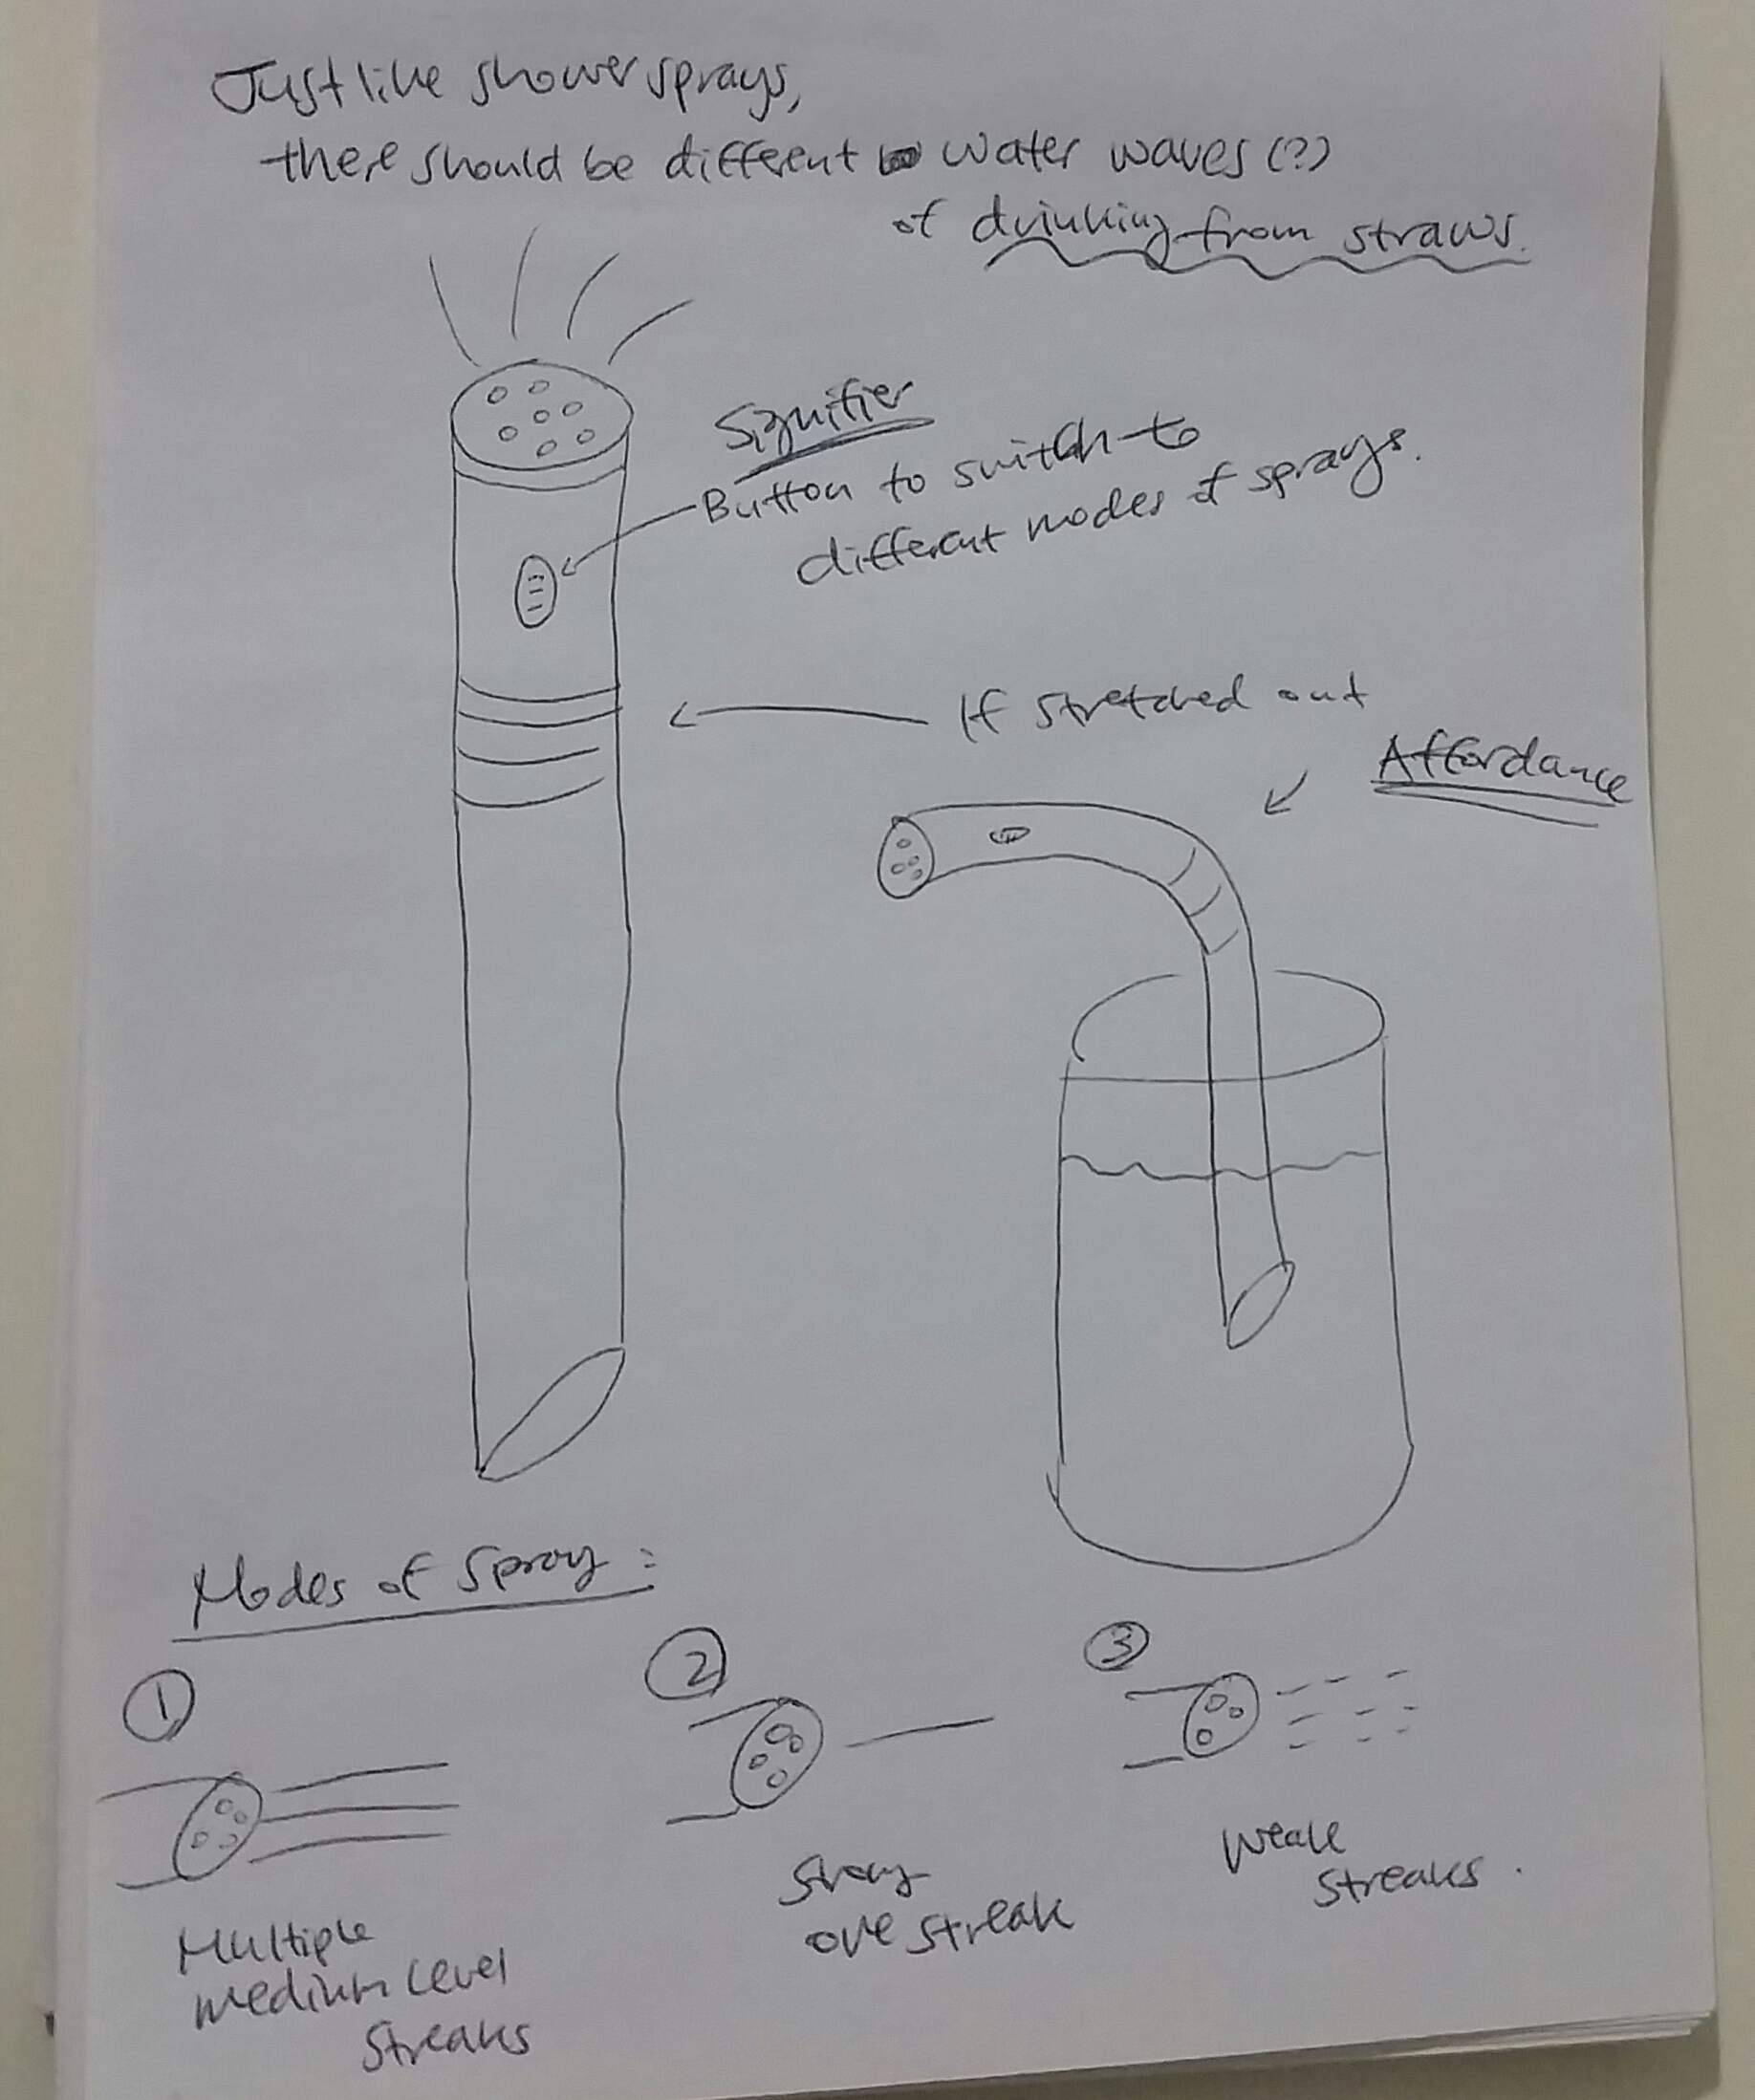 Just like shower sprays,
there should be different water waves (?)
of drinking from straws.
Signifier
Button to switch to
different modes of sprays.
If stretched out
Affordance
Modes of Spray :
1
Multiple
medium level
streaks
2
Strong
one streak
3
Weak
streaks.